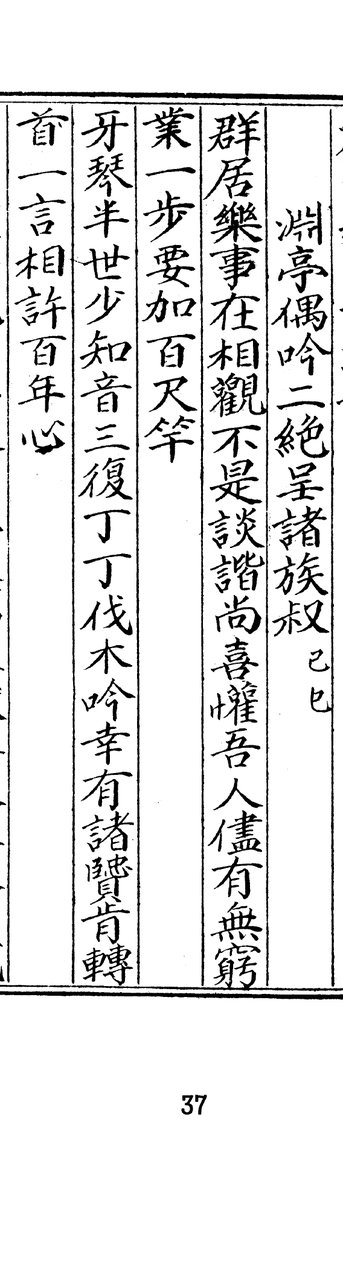 淵亭偶吟二絶呈諸族叔 己巳
群居樂事在相觀不是談諧尚喜懽吾人儘有無窮
業一步要加百尺竿
牙琴半世少知音三復丁丁伐木吟幸有諸賢肯轉
首一言相許百年心
37